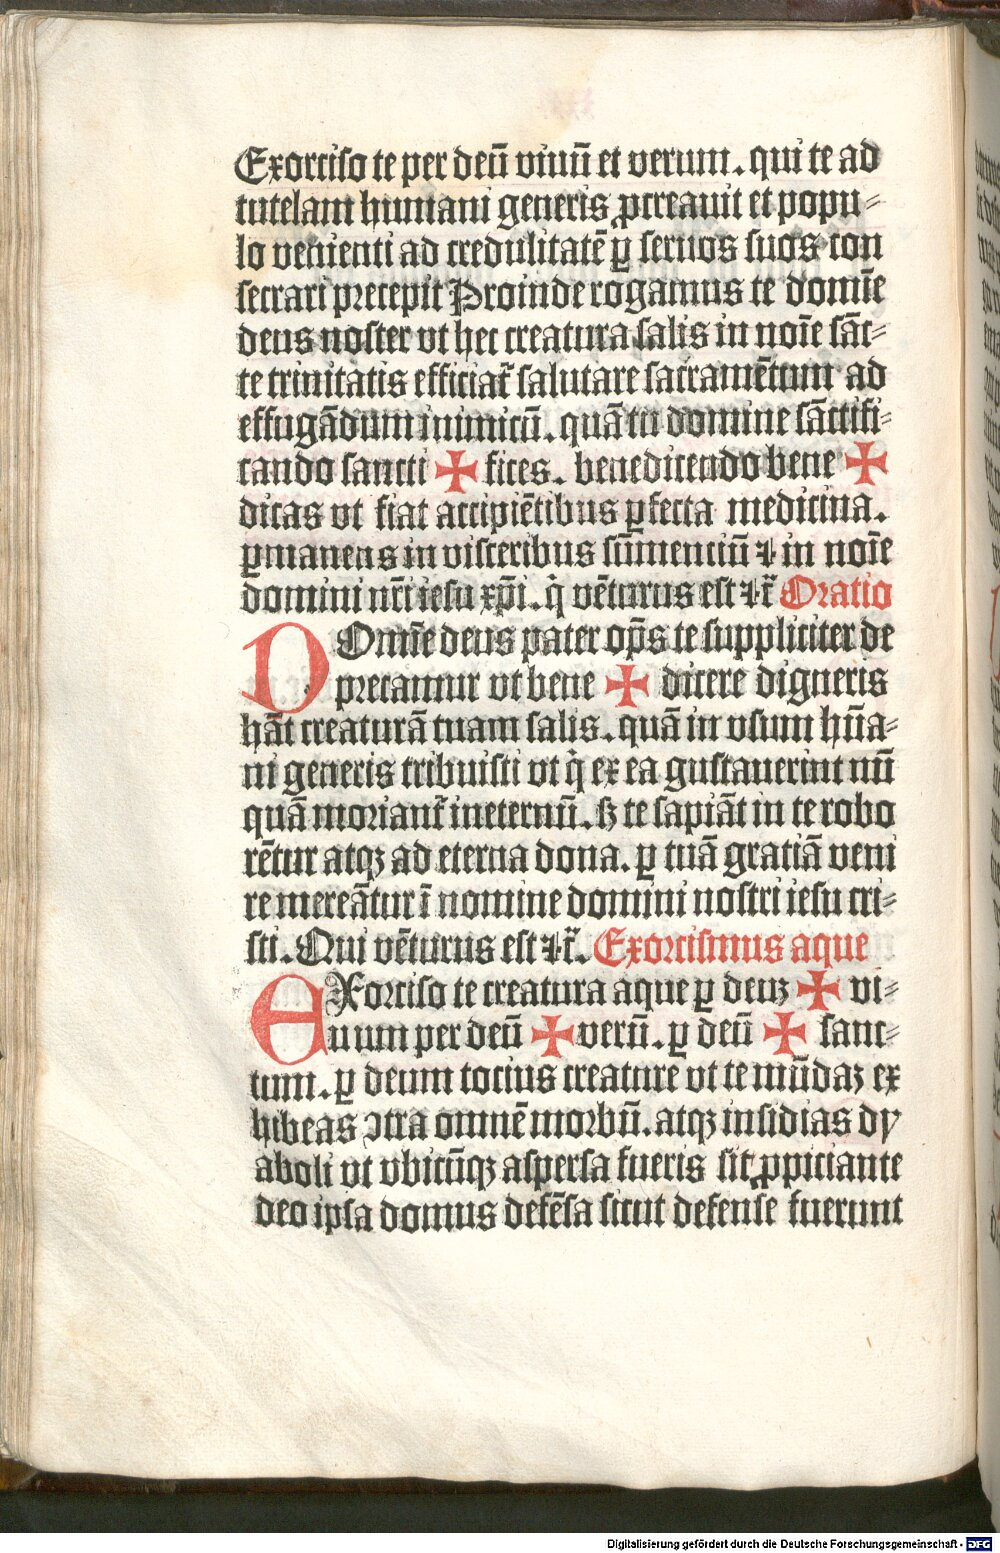 Exorciso te per deū viuū et verum. qui te ad
tutelam humani generis ꝓcreauit et popu⸗
lo venienti ad credulitatē ꝑ seruos suos con
secrari precepit Proinde rogamus te domīe
deus noster vt hec creatura salis in noīe sāc⸗
te trinitatis efficiat᷑ salutare sacramētum ad
effugādum inimicū. quā tu dōmine sāctifi⸗
cando sancti ✠ fices. benedicendo bene ✠
dicas vt fiat accipiētibus ꝑfecta medicina.
ꝑmanens in visceribus sūmenciū ⁊ in noīe
domini nr̄i iesu xp̄i. q̇ vēturus est ⁊r̄ Oratio
DOmīe deus pater op̄s te suppliciter de
precamur vt bene ✠ dicere digneris
hāc creaturā tuam salis. quā in vsum hūa⸗
ni generis tribuisti vt q̇ ex ea gustauerint nū
quā moriant᷑ ineternū. sꝫ te sapiāt in te robo
rētur atqꝫ ad eterna dona. ꝑ tuā gratiā veni
re mereātur ī nomine domini nostri iesu cri⸗
sti. Qui vēturus est ⁊r̄. Exorcismus aque
EXorciso te creatura aque ꝑ deuꝫ ✠ vi⸗
uum per deū ✠ verū. ꝑ deū ✠ sanc⸗
tum. ꝑ deum tocius creature vt te mūdaꝫ ex
hibeas ꝯtra omnē morbū. atqꝫ insidias dy
aboli vt vbicūqꝫ aspersa fueris sit ꝓpiciante
deo ipsa domus defēsa sicut defense fuerunt
Digitalisierung gefördert durch die Deutsche Forschungsgemeinschaft - DFG